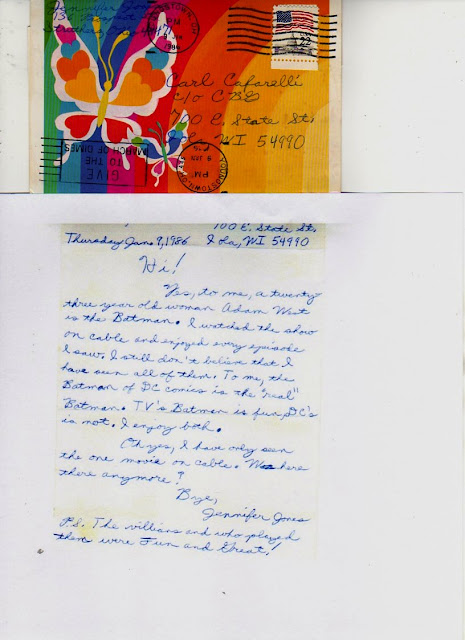 Jennifer Jones
Struthers, Ohio
PM
JAN
1986
Carl Cafarelli
c/o CBG
700 E. State St.
Iola, WI 54990
GIVE
TO THE
MARCH OF DIMES
YOUNGSTOWN, OH
PM
9 JAN
700 E. State St.
Thursday Jan. 9, 1986 Iola, WI 54990
Hi!
Yes, to me, a twenty
three year old woman Adam West
is the Batman. I watched the show
on cable and enjoyed every episode
I saw. I still don't believe that I
have seen all of them. To me, the
Batman of DC comics is the "real"
Batman. TV's Batman is fun, DC's
is not. I enjoy both.
Oh yes, I have only seen
the one movie on cable. Was here
there anymore?
Bye,
Jennifer Jones
P.S. The villians and who played
them were Fun and Great!